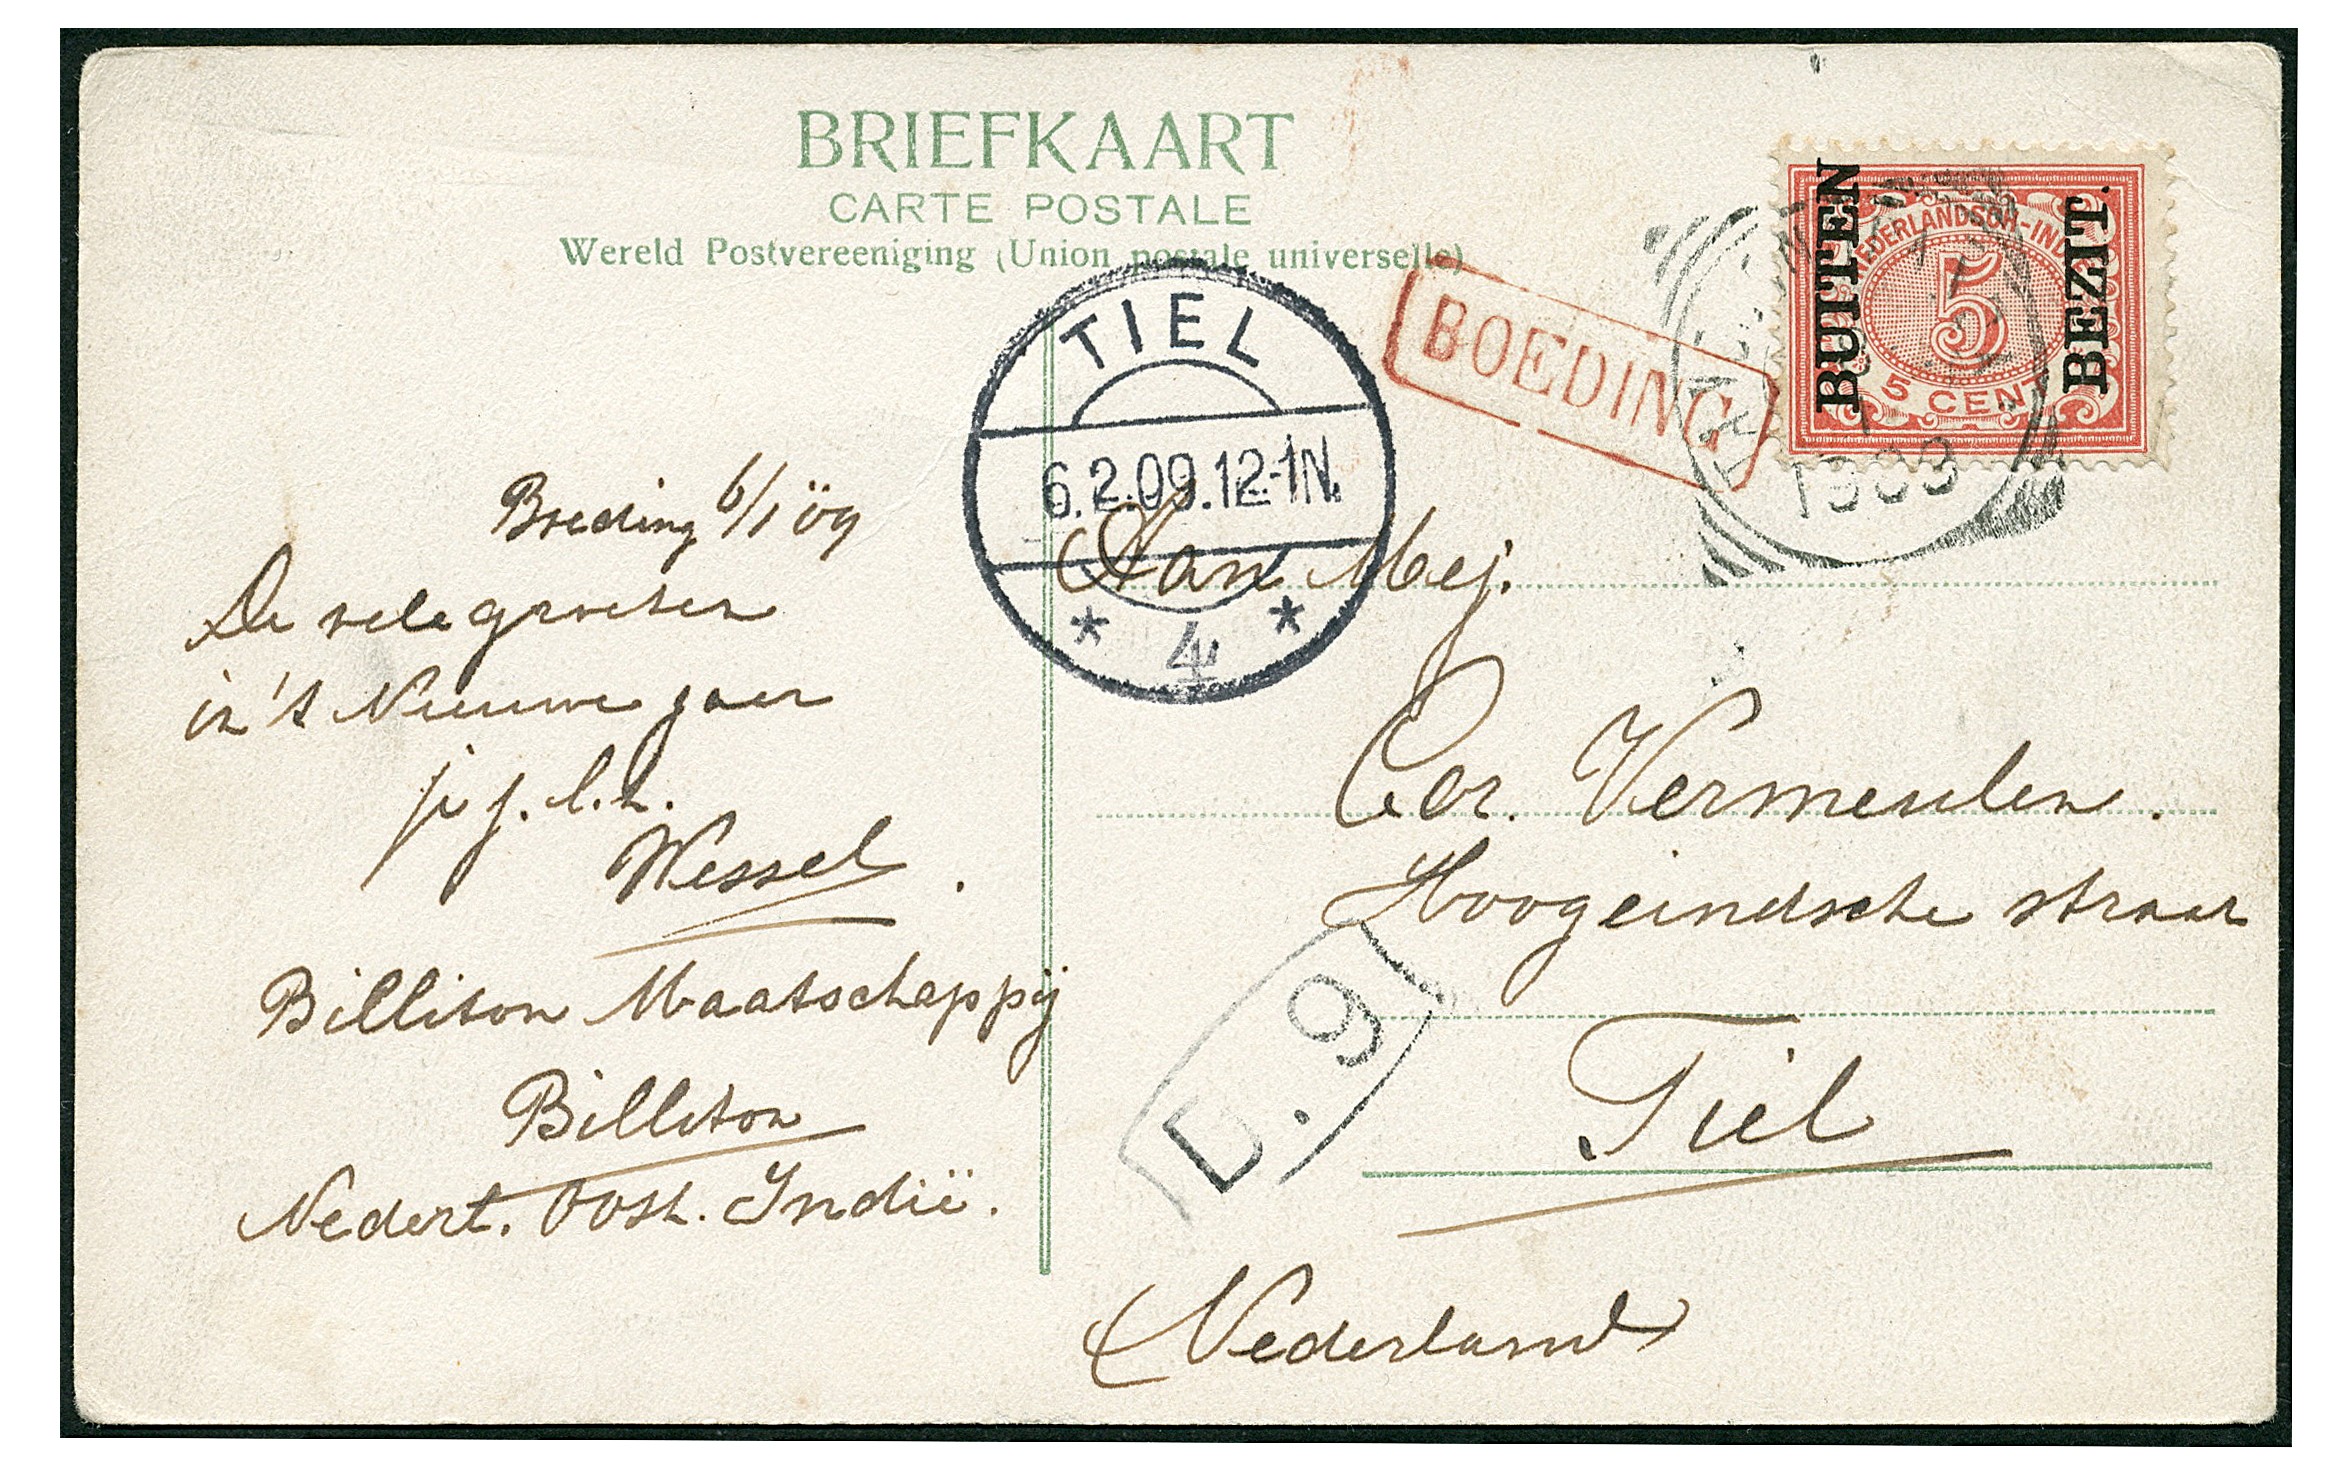 BRIEFKAART
CARTE POSTALE
Wereld Postvereeniging (Union postale universelle)
BUITEN BEZIT.
NEDERLANDSCH-INDIË
5
5 CENT
1909
BOEDING
TIEL
6.2.09.12-1N.
* 4 *
Boeding 6/1 09
De vele groeten
in 't Nieuwe jaar
Wessel.
Billiton Maatschappij
Billiton
Nederl. Oost. Indië.
Aan Mej.
Cor. Vermeulen.
Hoogeindsche straat
L.9
Tiel
Nederland